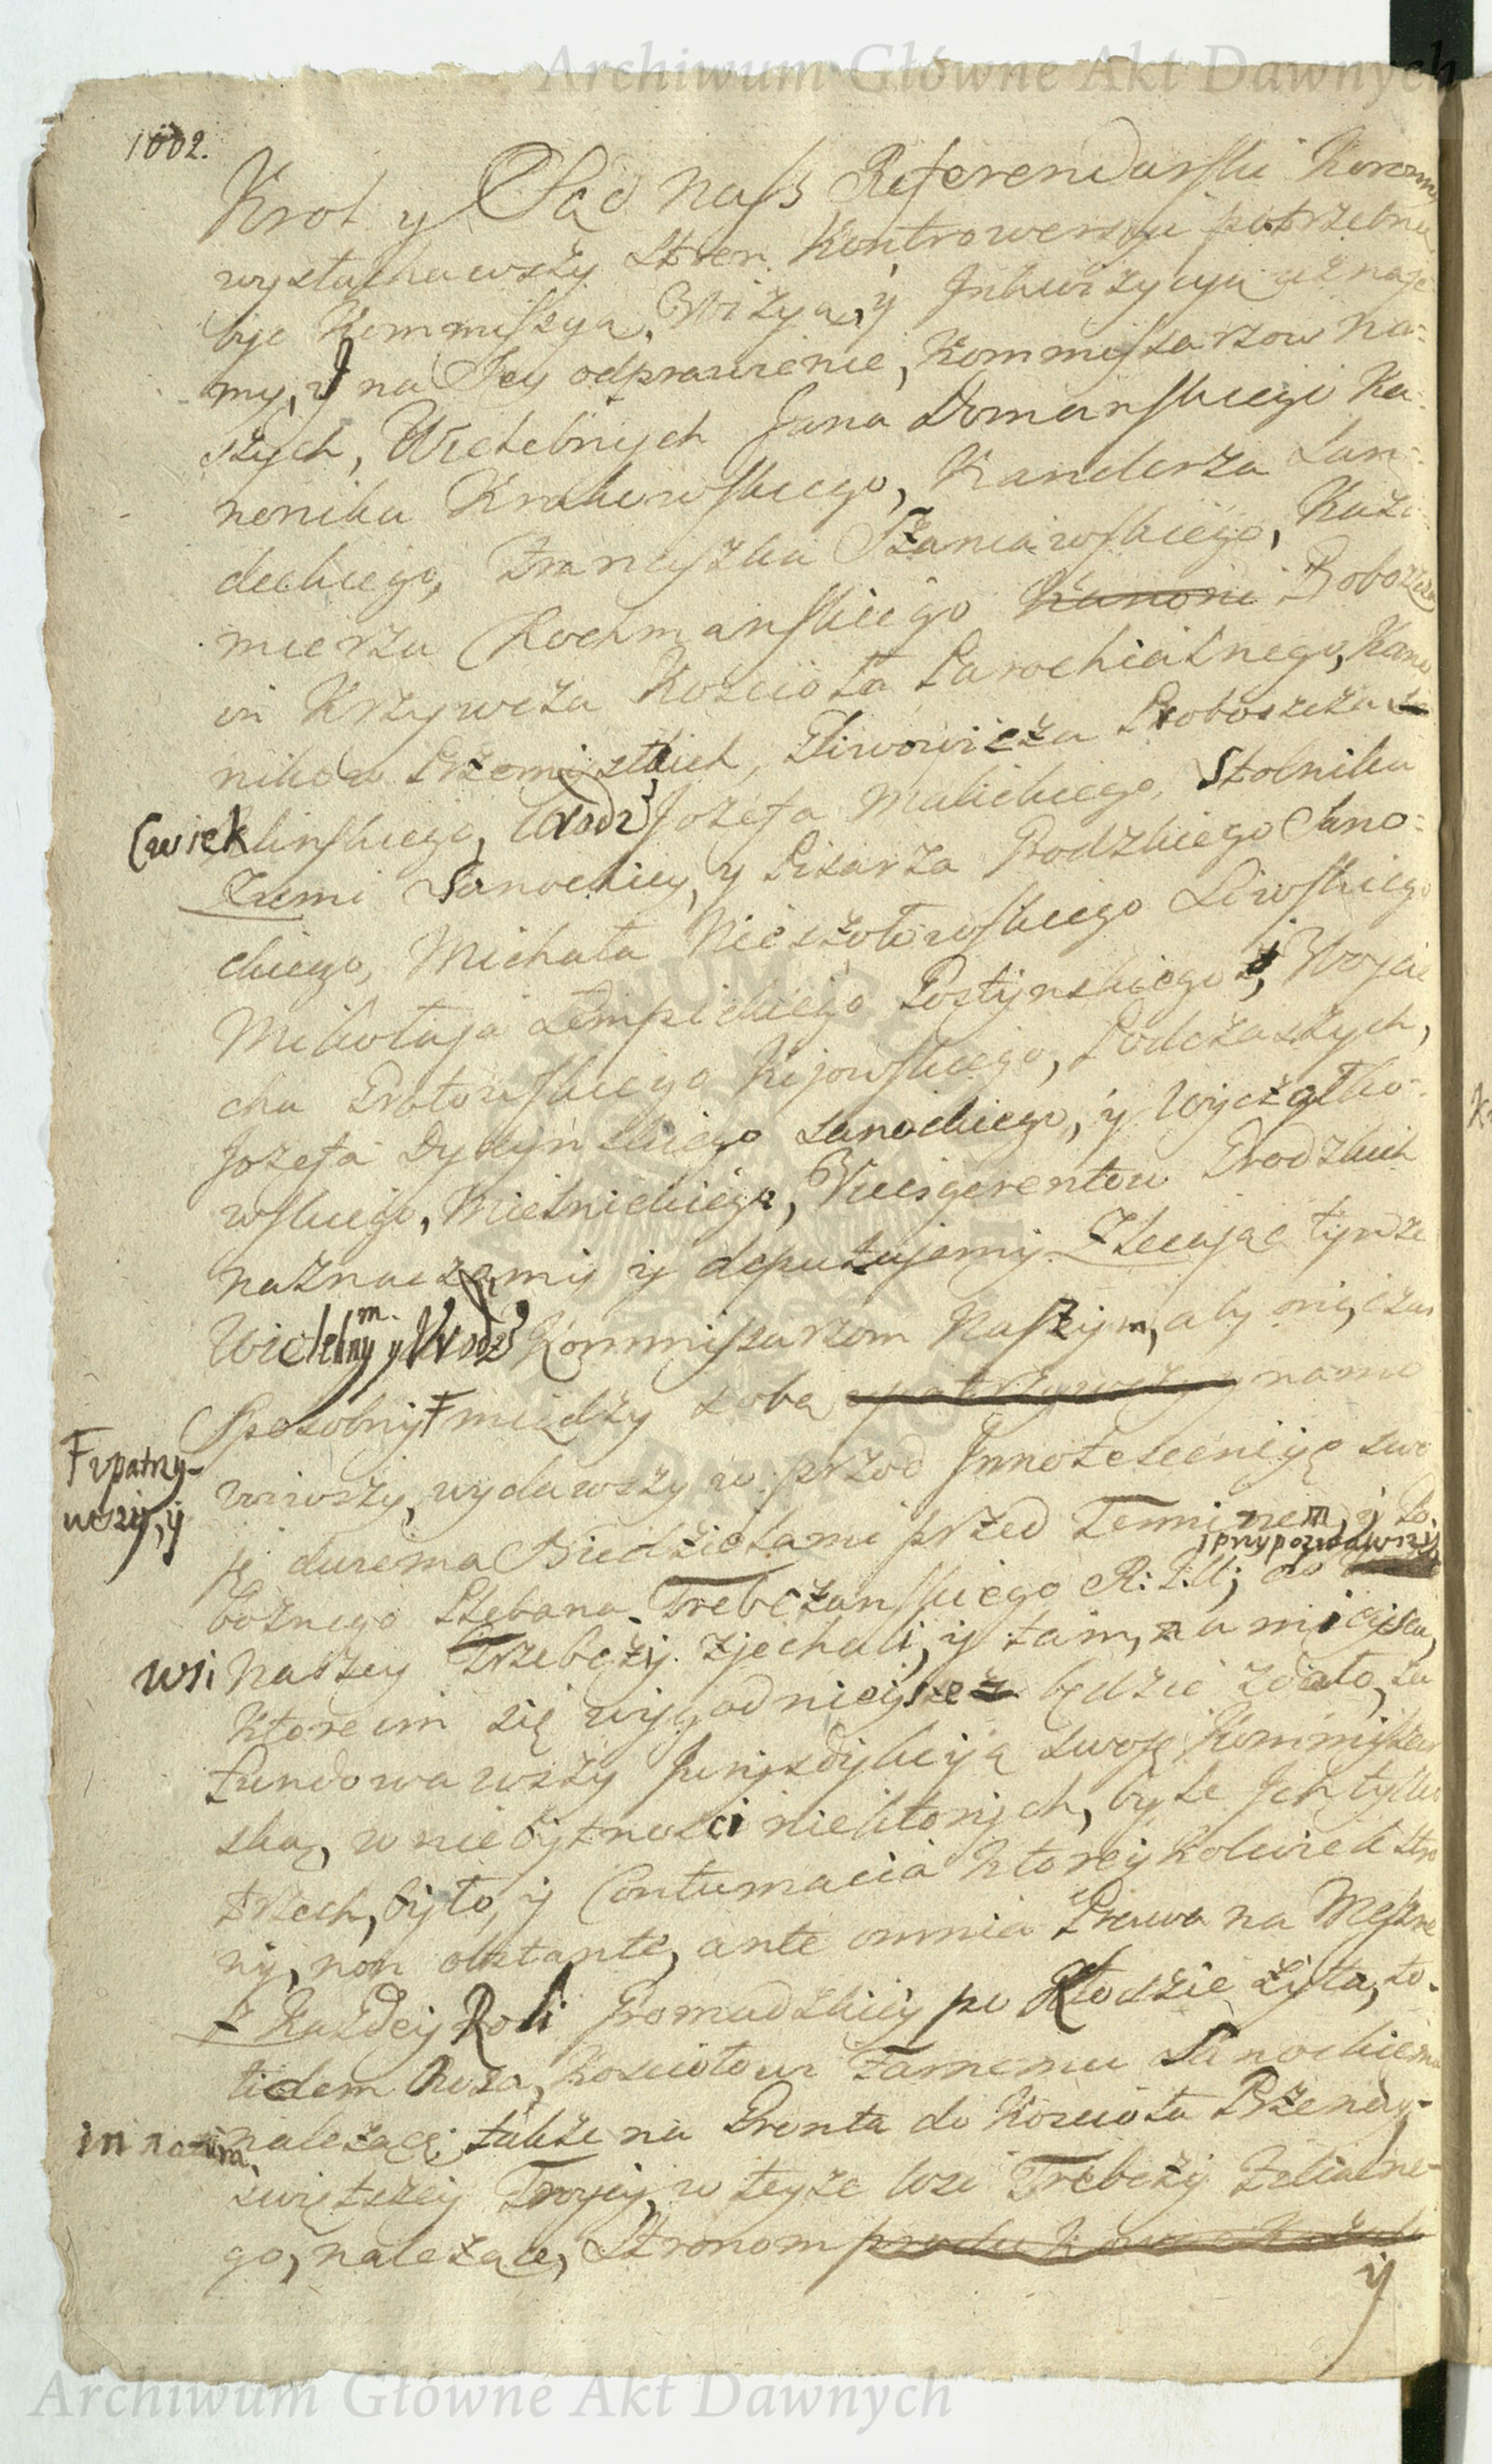 Archiwum Główne Akt Dawnych
1002.
Krol y Sąd Nasz Referendarski Koronny
wysłuchawszy Stron Kontrowersyi potrzebną
być Kommissyą, Wizyą, y Inkwizycyą uznaje
my, y na Jey odprawienie, Kommissarzow Na-
szych, Wielebnych Jana Domanskiego Ka-
nonika Krakowskiego, Kanclerza Lan-
deckiego, Franciszka Szaniawskiego, Kazi-
mierza Rochmanskiego Kanoni Proboszcza
in Krzywcza Kościoła Parochialnego, Kano
nikow Przemyskich, Proboszcza
Cwiek linskiego, Urodz Jozefa Malickiego, Stolnika
Ziemi Sanockiey, y Pisarza Grodzkiego Sano-
ckiego, Michała Nieszołowskiego Liwskiego
Mikołaja Łempickiego Gostynskiego, Woycie
cha Kijowskiego, Podczaszych,
Jozefa Dydynskiego Sanockiego, y Wyczałko-
wskiego, Mielnickiego, Vicesgerentow Grodzkich
naznaczamy y deputujemy. Zlecając tymże
Wielebnym y Urodz Kommissarzom Naszym, aby oni, czas
sposobny F między sobą upatrzywszy y namo
F upatrzy-
wszy, y
wiwszy, wydawszy w przod Innotescencyę swo
ję dwiema Niedzielami przed Terminem, y Po
bożnego Plebana Trebczanskiego R: L: U; do
i przypozwawszy
wsi Naszey Trzebczy zjechali, y tam, na mieyscu,
ktore im się wygodnieysze będzie zdało, za
fundowawszy Juryzdykcyą swoję Kommissar
ską, w niebytności niektorych, byle Jch tylko
trzech, było, y Contumacia ktoreykolwiek stro
ny, non obstante, ante omnia Prawa na Meszne
z każdey Roli Gromadzkiey po Kłodzie żyta, to-
tidem Owsa, Kościołowi Farnemu Sanockiemu
in natura należące; także na Gronta do Kościoła Przenay-
świętszey Troycy, w teyże wsi Trebczy Filialne-
go, należące, Stronom
y
Archiwum Główne Akt Dawnych